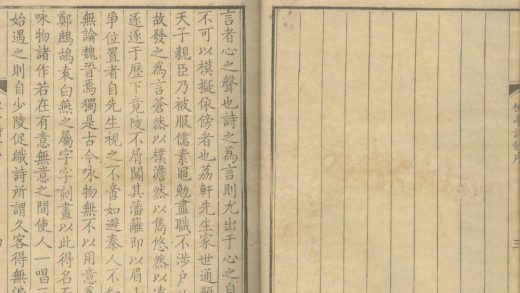 言者心之聲也詩之為言則尤出于心之自
不可以模擬依傍者也荔軒先生家世通顯
天子親臣乃被服儒素黽勉盡職不涉户
故發之為言蒼然以樸澹然以雋悠然以遠
逐逐于歷下竟陵不屑闖其藩籬即以眉
爭位置者自先生視之不啻如避秦人不知
無論魏晉焉獨是古今咏物無不以用意為
鄭鷓鴣袁白燕之屬字字刻畫以此得名
咏物諸作若在有意無意之間使人一唱三
始遇之則自少陵促織詩所謂久客得無淚